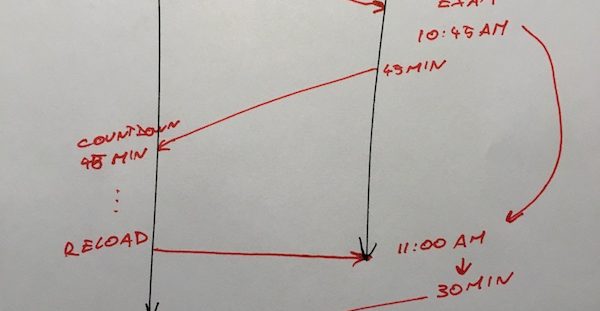 EXAM
10:45 AM
45 MIN
COUNTDOWN
45 MIN
RELOAD
11:00 AM
30 MIN